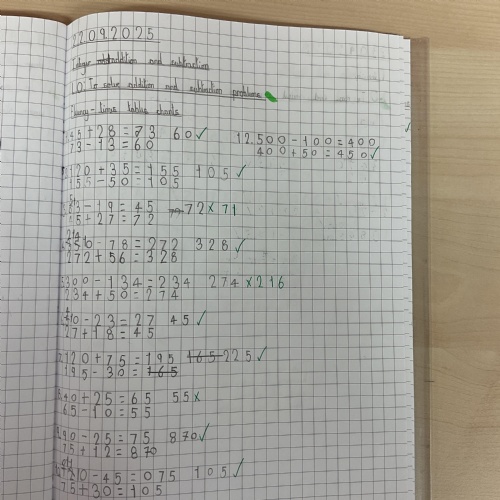 22.09.2025
Integer addition and subtraction
LO: To solve addition and subtraction problems.
Fluency - times tables charts
45+28=73 60✓
73-13=60
12.500-100=400
400+50=450✓
120+35=155 105✓
155-50=105
-19=45 72× 71
+27=72
-78=272 328✓
272+56=328
300-134=234 274 ×216
234+50=274
-23=27 45✓
27+18=45
120+75=195 165 225✓
195-30=165
40+25=65 55×
65-10=55
90-25=75 870✓
75+12=870
-45=075 105✓
75+30=105